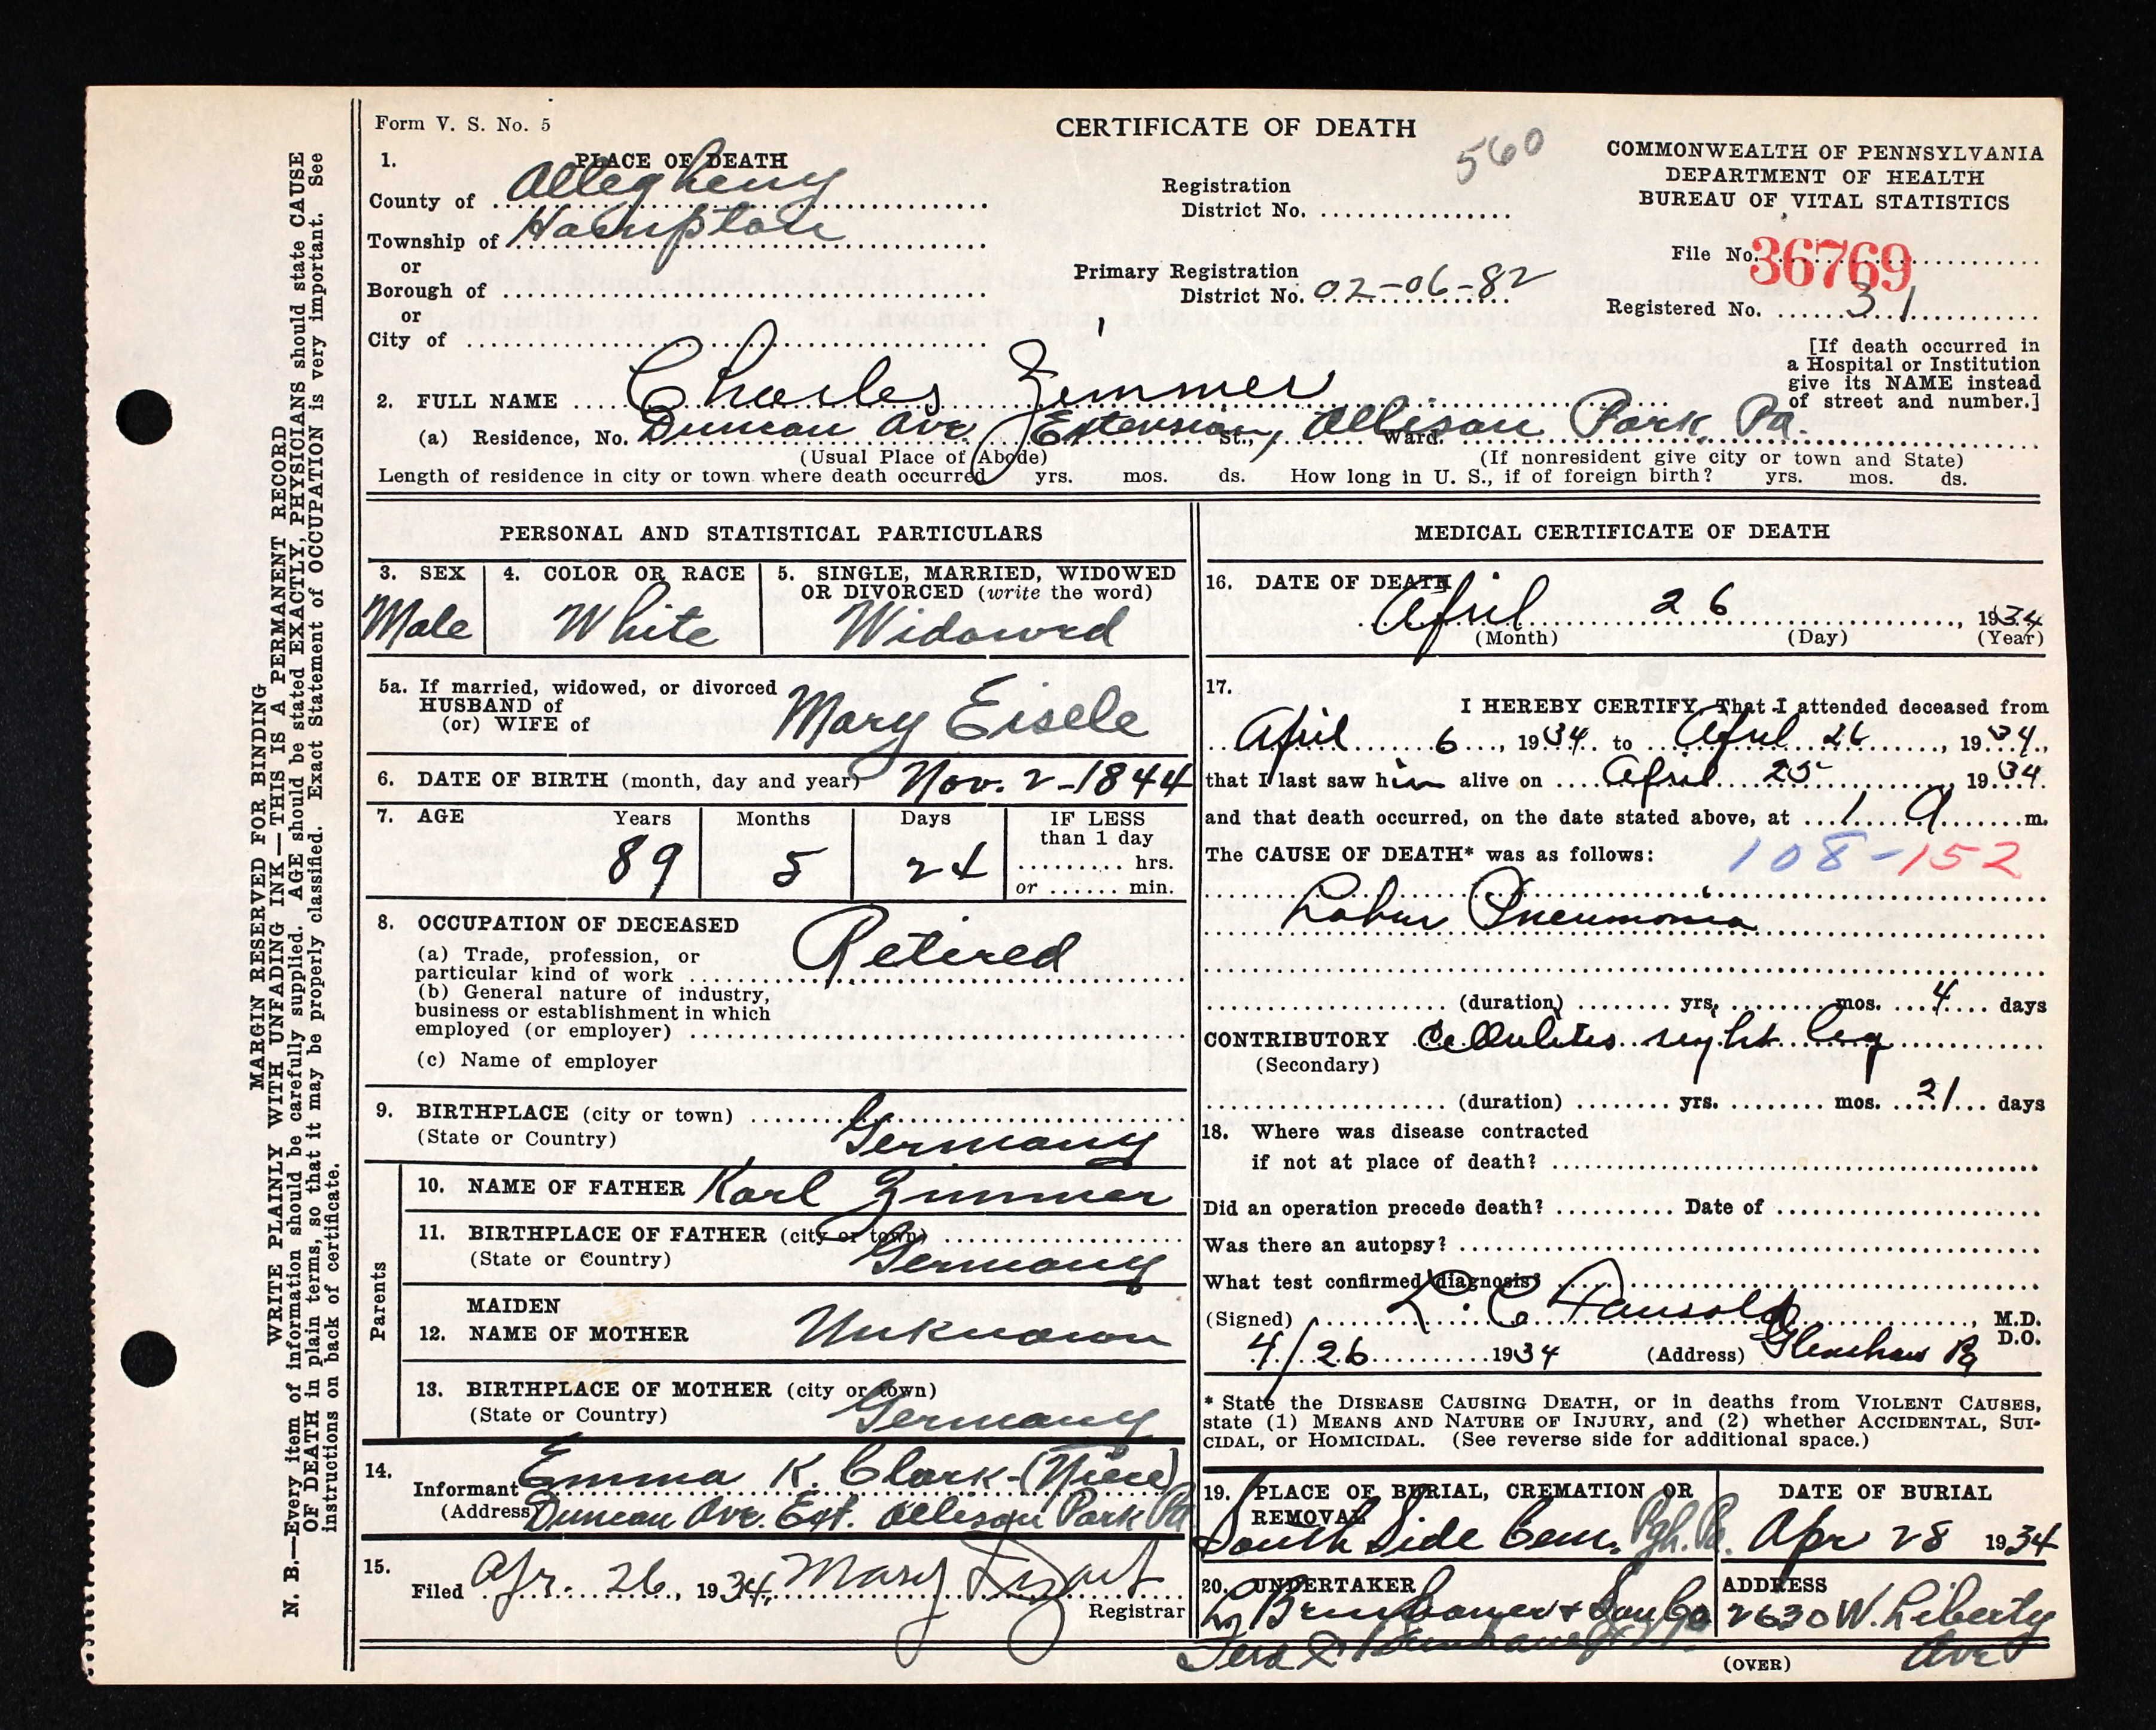 Form V. S. No. 5
CERTIFICATE OF DEATH
560
COMMONWEALTH OF PENNSYLVANIA
DEPARTMENT OF HEALTH
BUREAU OF VITAL STATISTICS
1. PLACE OF DEATH
County of Allegheny
Township of Hampton
or
Borough of
or
City of
Registration
District No.
Primary Registration
District No. 02-06-82
File No. 36769
Registered No. 31
[If death occurred in
a Hospital or Institution
give its NAME instead
of street and number.]
2. FULL NAME Charles Zimmer
(a) Residence, No. Duncan Ave. Extension St., Allison Park, Pa. Ward.
(Usual Place of Abode) (If nonresident give city or town and State)
Length of residence in city or town where death occurred yrs. mos. ds. How long in U. S., if of foreign birth? yrs. mos. ds.
PERSONAL AND STATISTICAL PARTICULARS
3. SEX
Male
4. COLOR OR RACE
White
5. SINGLE, MARRIED, WIDOWED
OR DIVORCED (write the word)
Widowed
5a. If married, widowed, or divorced
HUSBAND of
(or) WIFE of
Mary Eisele
6. DATE OF BIRTH (month, day and year) Nov. 2-1844
7. AGE Years Months Days IF LESS
than 1 day
hrs.
or min.
89 5 24
8. OCCUPATION OF DECEASED
(a) Trade, profession, or
particular kind of work Retired
(b) General nature of industry,
business or establishment in which
employed (or employer)
(c) Name of employer
9. BIRTHPLACE (city or town)
(State or Country) Germany
Parents
10. NAME OF FATHER Karl Zimmer
11. BIRTHPLACE OF FATHER (city or town)
(State or Country) Germany
MAIDEN
12. NAME OF MOTHER Unknown
13. BIRTHPLACE OF MOTHER (city or town)
(State or Country) Germany
14. Informant Emma K. Clark-(Niece)
(Address) Duncan Ave. Ext. Allison Park Pa
15. Filed Apr. 26, 1934, Mary
Registrar
MEDICAL CERTIFICATE OF DEATH
16. DATE OF DEATH
April 26, 1934
(Month) (Day) (Year)
17. I HEREBY CERTIFY, That I attended deceased from
April 6, 1934 to April 26, 1934,
that I last saw him alive on April 25 1934.
and that death occurred, on the date stated above, at 1 a m.
The CAUSE OF DEATH* was as follows:
108-152
Lobar Pneumonia
(duration) yrs. mos. 4 days
CONTRIBUTORY Cellulitis right leg
(Secondary)
(duration) yrs. mos. 21 days
18. Where was disease contracted
if not at place of death?
Did an operation precede death? Date of
Was there an autopsy?
What test confirmed diagnosis?
(Signed) L. C. Hausold, M.D.
D.O.
4/26 1934 (Address) Glenshaw Pa
* State the DISEASE CAUSING DEATH, or in deaths from VIOLENT CAUSES,
state (1) MEANS AND NATURE OF INJURY, and (2) whether ACCIDENTAL, SUI-
CIDAL, or HOMICIDAL. (See reverse side for additional space.)
19. PLACE OF BURIAL, CREMATION OR
REMOVAL
South Side Cem. Pgh. Pa.
DATE OF BURIAL
Apr 28 1934
20. UNDERTAKER
Beinhauer & Son Co
ADDRESS
2630 W. Liberty
Ave
Beinhauer
(OVER)
MARGIN RESERVED FOR BINDING
WRITE PLAINLY WITH UNFADING INK—THIS IS A PERMANENT RECORD
N. B.—Every item of information should be carefully supplied. AGE should be stated EXACTLY, PHYSICIANS should state CAUSE
OF DEATH in plain terms, so that it may be properly classified. Exact Statement of OCCUPATION is very important. See
instructions on back of certificate.